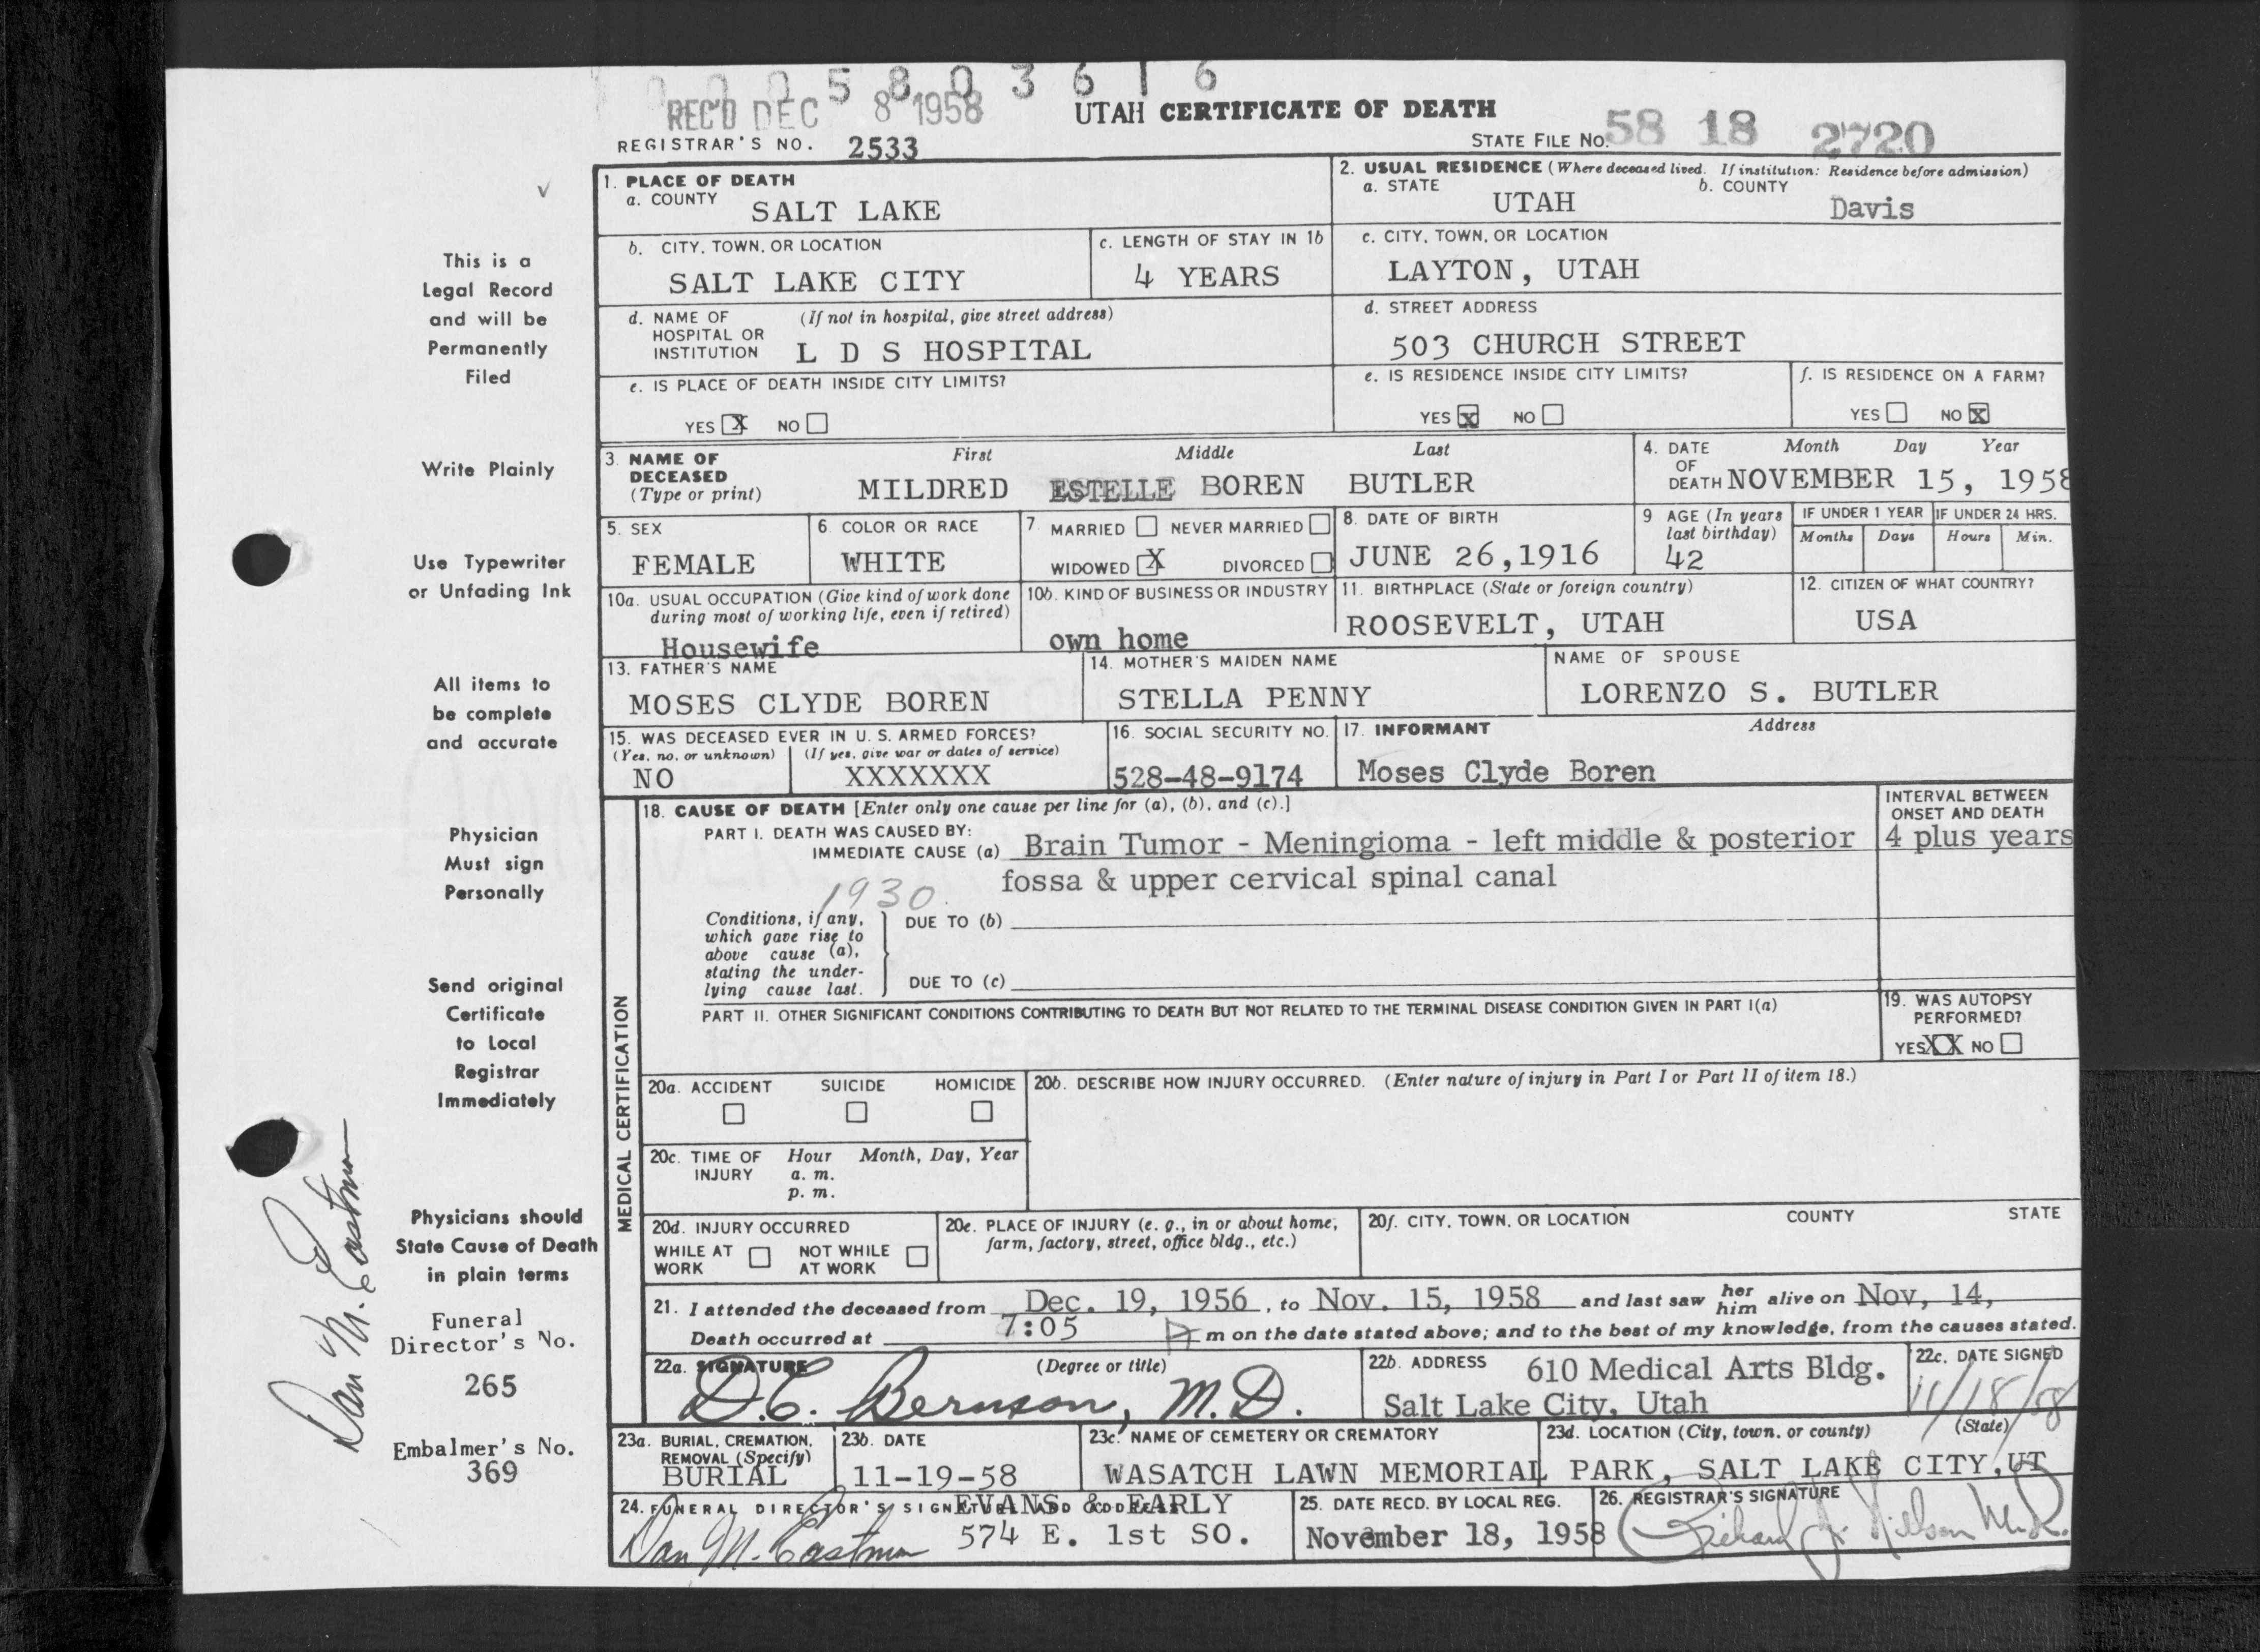 0 0 0 5 8 0 3 6 1 6
REC'D DEC 8 1958
UTAH CERTIFICATE OF DEATH
REGISTRAR'S NO. 2533
STATE FILE NO. 58 18 2720
1. PLACE OF DEATH
a. COUNTY SALT LAKE
2. USUAL RESIDENCE (Where deceased lived. If institution: Residence before admission)
a. STATE UTAH b. COUNTY Davis
b. CITY, TOWN, OR LOCATION SALT LAKE CITY
c. LENGTH OF STAY IN 1b 4 YEARS
c. CITY, TOWN, OR LOCATION LAYTON, UTAH
d. NAME OF HOSPITAL OR INSTITUTION (If not in hospital, give street address) L D S HOSPITAL
d. STREET ADDRESS 503 CHURCH STREET
e. IS PLACE OF DEATH INSIDE CITY LIMITS?
YES X NO
e. IS RESIDENCE INSIDE CITY LIMITS?
YES X NO
f. IS RESIDENCE ON A FARM?
YES NO X
3. NAME OF DECEASED (Type or print)
First Middle Last
MILDRED ESTELLE BOREN BUTLER
4. DATE OF DEATH Month Day Year
NOVEMBER 15, 1958
5. SEX FEMALE
6. COLOR OR RACE WHITE
7. MARRIED NEVER MARRIED
WIDOWED X DIVORCED
8. DATE OF BIRTH JUNE 26,1916
9 AGE (In years last birthday) 42
IF UNDER 1 YEAR Months Days
IF UNDER 24 HRS. Hours Min.
10a. USUAL OCCUPATION (Give kind of work done during most of working life, even if retired)
Housewife
10b. KIND OF BUSINESS OR INDUSTRY
own home
11. BIRTHPLACE (State or foreign country)
ROOSEVELT, UTAH
12. CITIZEN OF WHAT COUNTRY?
USA
13. FATHER'S NAME
MOSES CLYDE BOREN
14. MOTHER'S MAIDEN NAME
STELLA PENNY
NAME OF SPOUSE
LORENZO S. BUTLER
15. WAS DECEASED EVER IN U. S. ARMED FORCES?
(Yes, no, or unknown) (If yes, give war or dates of service)
NO XXXXXXX
16. SOCIAL SECURITY NO.
528-48-9174
17. INFORMANT Address
Moses Clyde Boren
MEDICAL CERTIFICATION
18. CAUSE OF DEATH [Enter only one cause per line for (a), (b), and (c).]
INTERVAL BETWEEN ONSET AND DEATH
PART I. DEATH WAS CAUSED BY:
IMMEDIATE CAUSE (a) Brain Tumor - Meningioma - left middle & posterior
4 plus years
fossa & upper cervical spinal canal
1930
Conditions, if any, which gave rise to above cause (a), stating the underlying cause last.
DUE TO (b)
DUE TO (c)
PART II. OTHER SIGNIFICANT CONDITIONS CONTRIBUTING TO DEATH BUT NOT RELATED TO THE TERMINAL DISEASE CONDITION GIVEN IN PART I(a)
19. WAS AUTOPSY PERFORMED?
YES XX NO
20a. ACCIDENT SUICIDE HOMICIDE
20b. DESCRIBE HOW INJURY OCCURRED. (Enter nature of injury in Part I or Part II of item 18.)
20c. TIME OF INJURY Hour Month, Day, Year
a. m.
p. m.
20d. INJURY OCCURRED
WHILE AT WORK NOT WHILE AT WORK
20e. PLACE OF INJURY (e. g., in or about home, farm, factory, street, office bldg., etc.)
20f. CITY, TOWN, OR LOCATION COUNTY STATE
21. I attended the deceased from Dec. 19, 1956, to Nov. 15, 1958 and last saw her him alive on Nov, 14,
Death occurred at 7:05 m on the date stated above; and to the best of my knowledge, from the causes stated.
22a. SIGNATURE (Degree or title)
D.C. Bernson, M.D.
22b. ADDRESS 610 Medical Arts Bldg.
Salt Lake City, Utah
22c. DATE SIGNED
11/18/58
23a. BURIAL, CREMATION, REMOVAL (Specify)
BURIAL
23b. DATE
11-19-58
23c. NAME OF CEMETERY OR CREMATORY
WASATCH LAWN MEMORIAL PARK,
23d. LOCATION (City, town, or county) (State)
SALT LAKE CITY,UT
24. FUNERAL DIRECTOR'S SIGNATURE AND ADDRESS
EVANS & EARLY
Dan M. Eastman 574 E. 1st SO.
25. DATE RECD. BY LOCAL REG.
November 18, 1958
26. REGISTRAR'S SIGNATURE
Richard J. Nilson M.D.
This is a
Legal Record
and will be
Permanently
Filed
Write Plainly
Use Typewriter
or Unfading Ink
All items to
be complete
and accurate
Physician
Must sign
Personally
Send original
Certificate
to Local
Registrar
Immediately
Physicians should
State Cause of Death
in plain terms
Funeral
Director's No.
265
Embalmer's No.
369
Dan M. Eastman